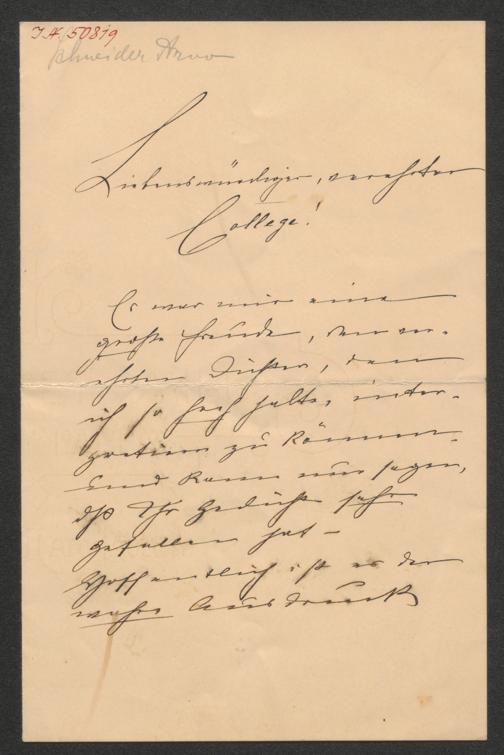 I.N. 50819
Schneider Arno
Liebenswürdiger, verehrter
College!
Es war mir eine
große Freude, den ver-
ehrten Dichter, den
ich so hoch halte, inter-
pretieren zu können
und kann nur sagen,
dß Ihr Gedicht sehr
gefallen hat –
Hoffentlich ist es der
wahre Ausdruck